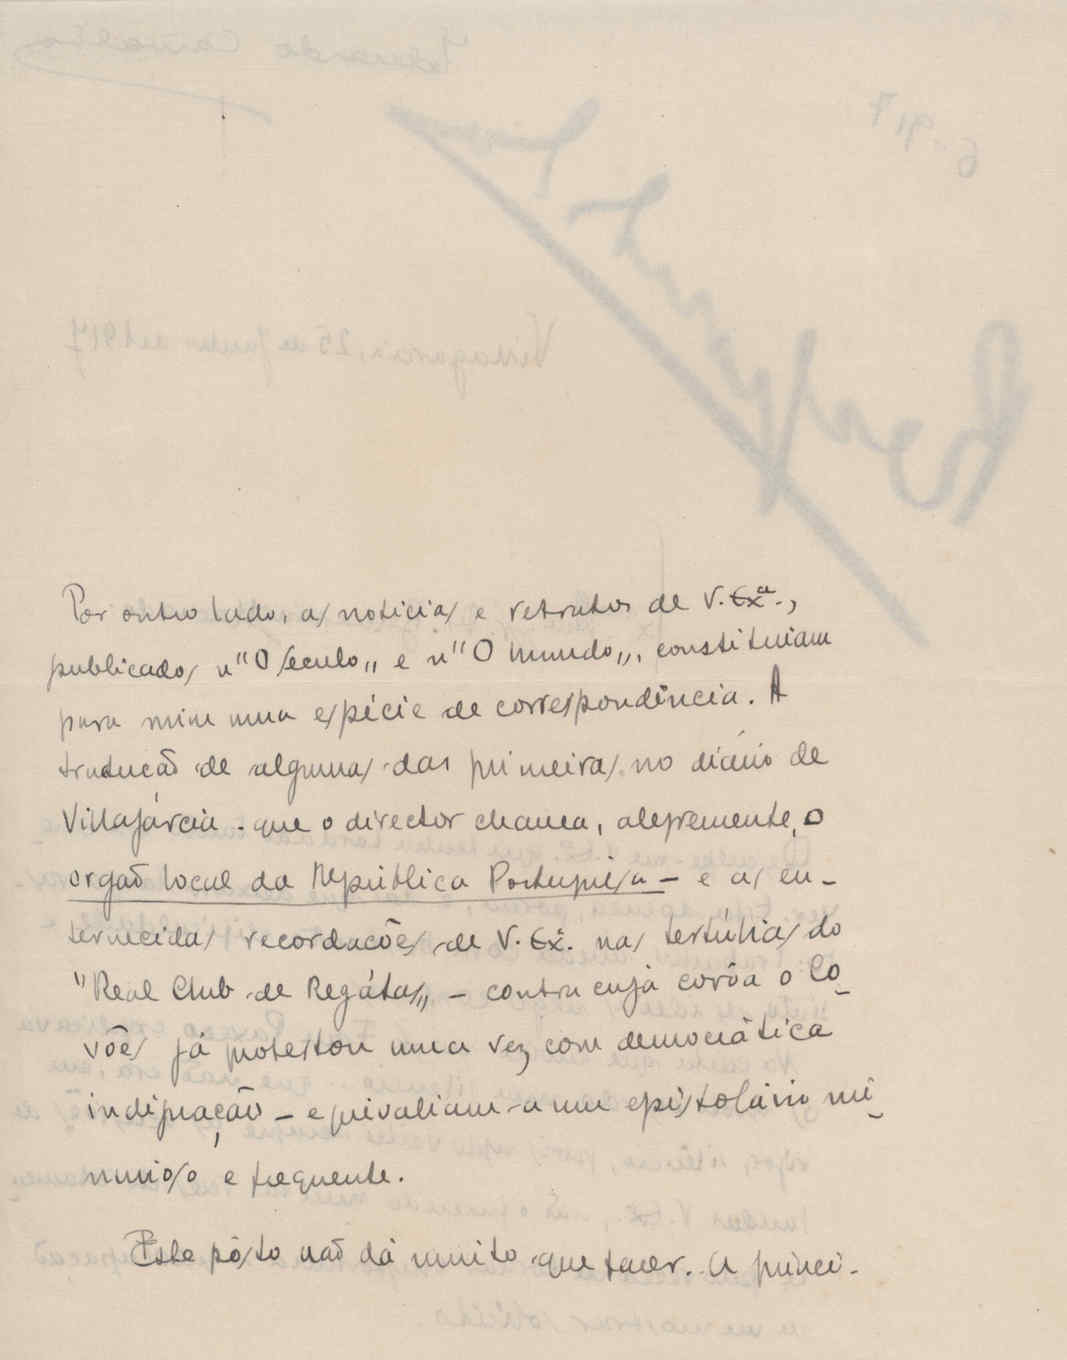 Por outro lado, as noticias e retratos de V. Exª.,
publicados n"O Seculo„ e n"O Mundo„, constituiam
para mim uma espécie de correspondência. A
tradução de algumas das primeiras no diário de
Villagárcia - que o director chama, alegremente, o
orgaõ local da República Portuguêsa - e as en-
ternecidas recordações de V. Exª. nas tertúlias do
"Real Club de Regátas„ - contra cuja corôa o Co-
vões já protestou uma vez com democrática
indignação - equivaliam a um epistolário mi-
nunioso e frequente.
Este pôsto naõ dá muito que fazer. A princi-